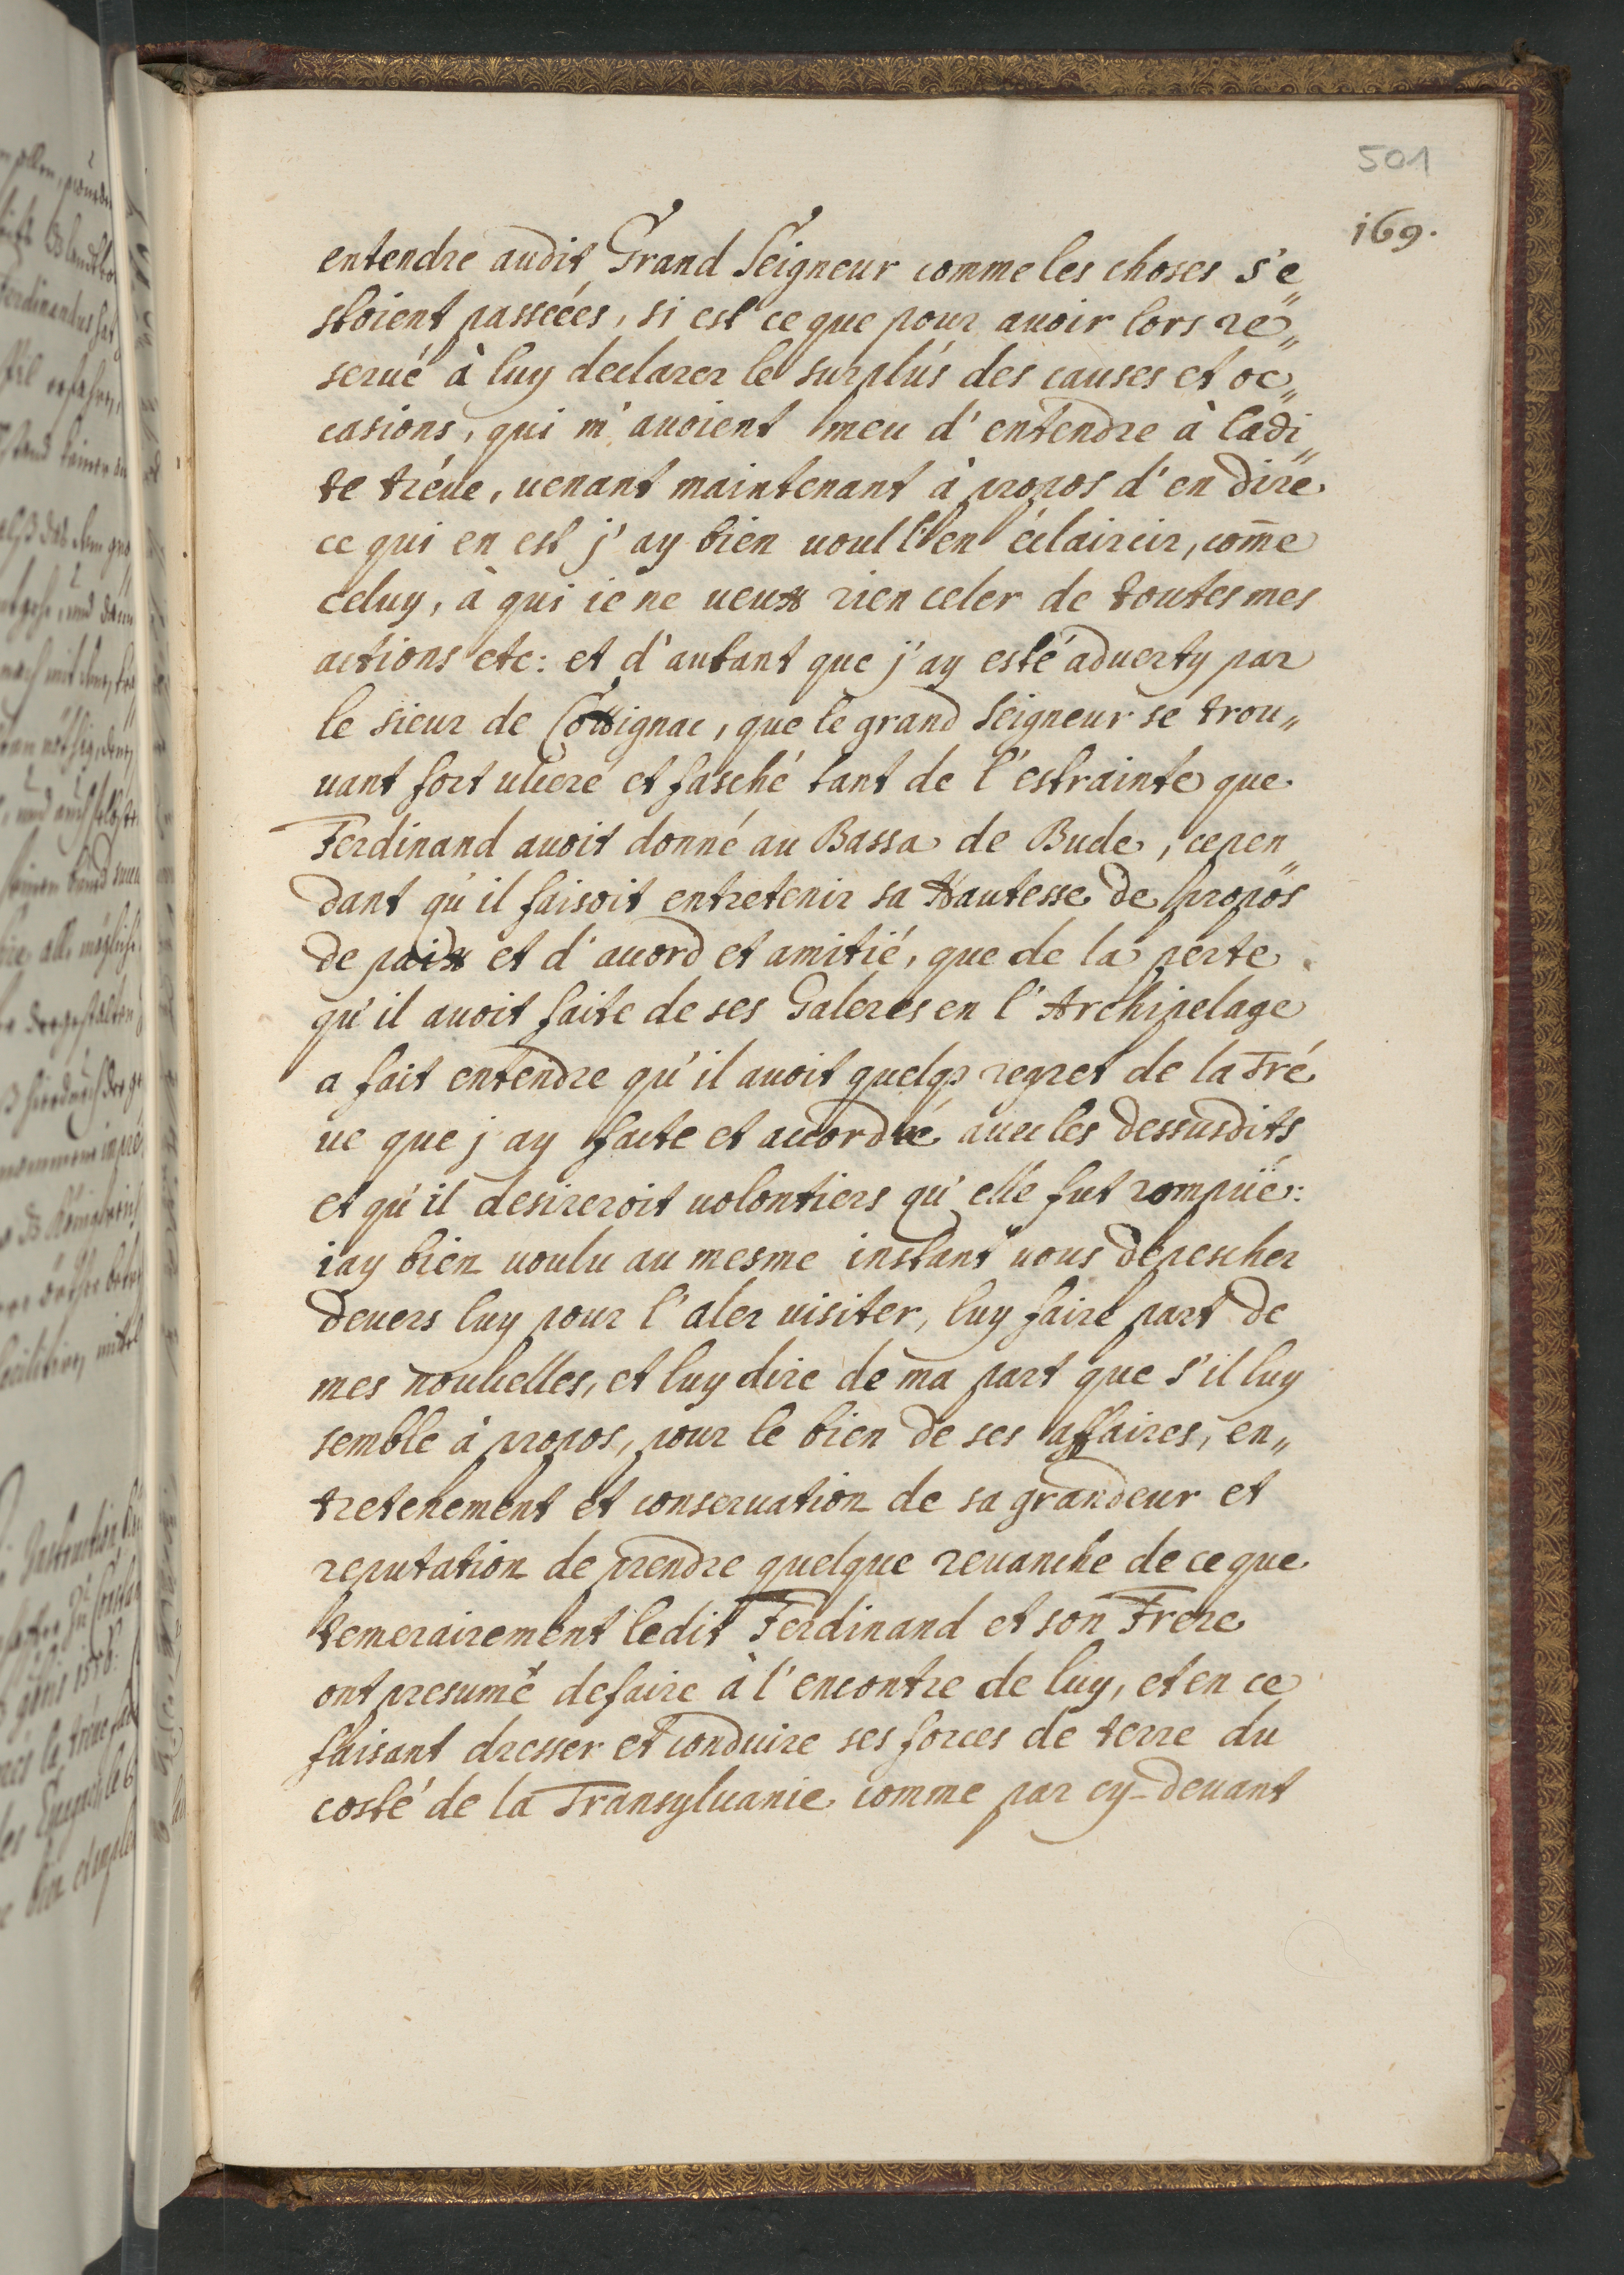 501
169.
entendre audit Grand Seigneur comme les choses s'e„
stoient passéées, si est ce que pour auoir lors re„
serué à luy declarer le surplus des causes et oc„
casions, qui m'auoient meu d'entendre à ladi„
te tréue, uenant maintenant à propos d'en dire
ce qui en est j'ay bien uoul l'en éclaircir, com̄e
celuy, à qui ie ne ueux rien celer de toutes mes
actions etc: et d'autant que j'ay esté aduerty par
le sieur de Cossignac, que le grand Seigneur se trou„
uant fort ulceré et fasché tant de l'estrainte que
Ferdinand auoit donné au Bassa de Bude, cepen„
dant qu'il faisoit entretenir sa Hautesse de propos
de paix et d'acord et amitié, que de la perte
qu'il auoit faite de ses Galeres en l'Archipelage
a fait entendre qu'il auoit quelqs regret de la Tré
ue que j'ay facte et accordée auec les dessusdits
et qu'il desireroit uolontiers qu'elle fut rompuë:
i'ay bien uoulu au mesme instant uous depescher
deuers luy pour l'aler uisiter, luy faire part de
mes nouuelles, et luy dire de ma part que s'il luy
semble à propos, pour le bien de ses affaires, en„
tretenement et conseruation de sa grandeur et
reputation de prendre quelque reuanche de ce que
temerairement ledit Ferdinand et son Frere
ont presumé de faire à l'encontre de luy, et en ce
faisant dresser et conduire ses forces de terre du
costé de la Transyluanie comme par cy-deuant